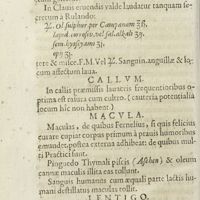 In Clauis eruendis valde laudatur tanquam se-
cretum à Rulando:
Ol. sulphur per Campanam
lapid. corrosiv. vel sal. alkali
sem. hyoscyami
opij
tere & misce. F. M. Vel Sanguin. anguillæ & lo-
cum affectum laua.
CALLVM.
In callis præmissis lauacris frequentioribus o-
ptima est rasura cum cultro. (cauteria potentialia
hîc non habent locum)
MACVLA.
Maculas, de quibus Fernelius, si quis felicius
curare cupiat corpus primùm à prauis humoribus
emundet, postea externa adhibeat: de quibus mul-
ti Practici sunt.
Pinguedo Thymali piscis (Aschen) & oleum
cannæ maculis illita eas tollunt.
Sanguis humanus cum æquali parte lactis hu-
mani destillatus maculas tollit.
LENTIGO.